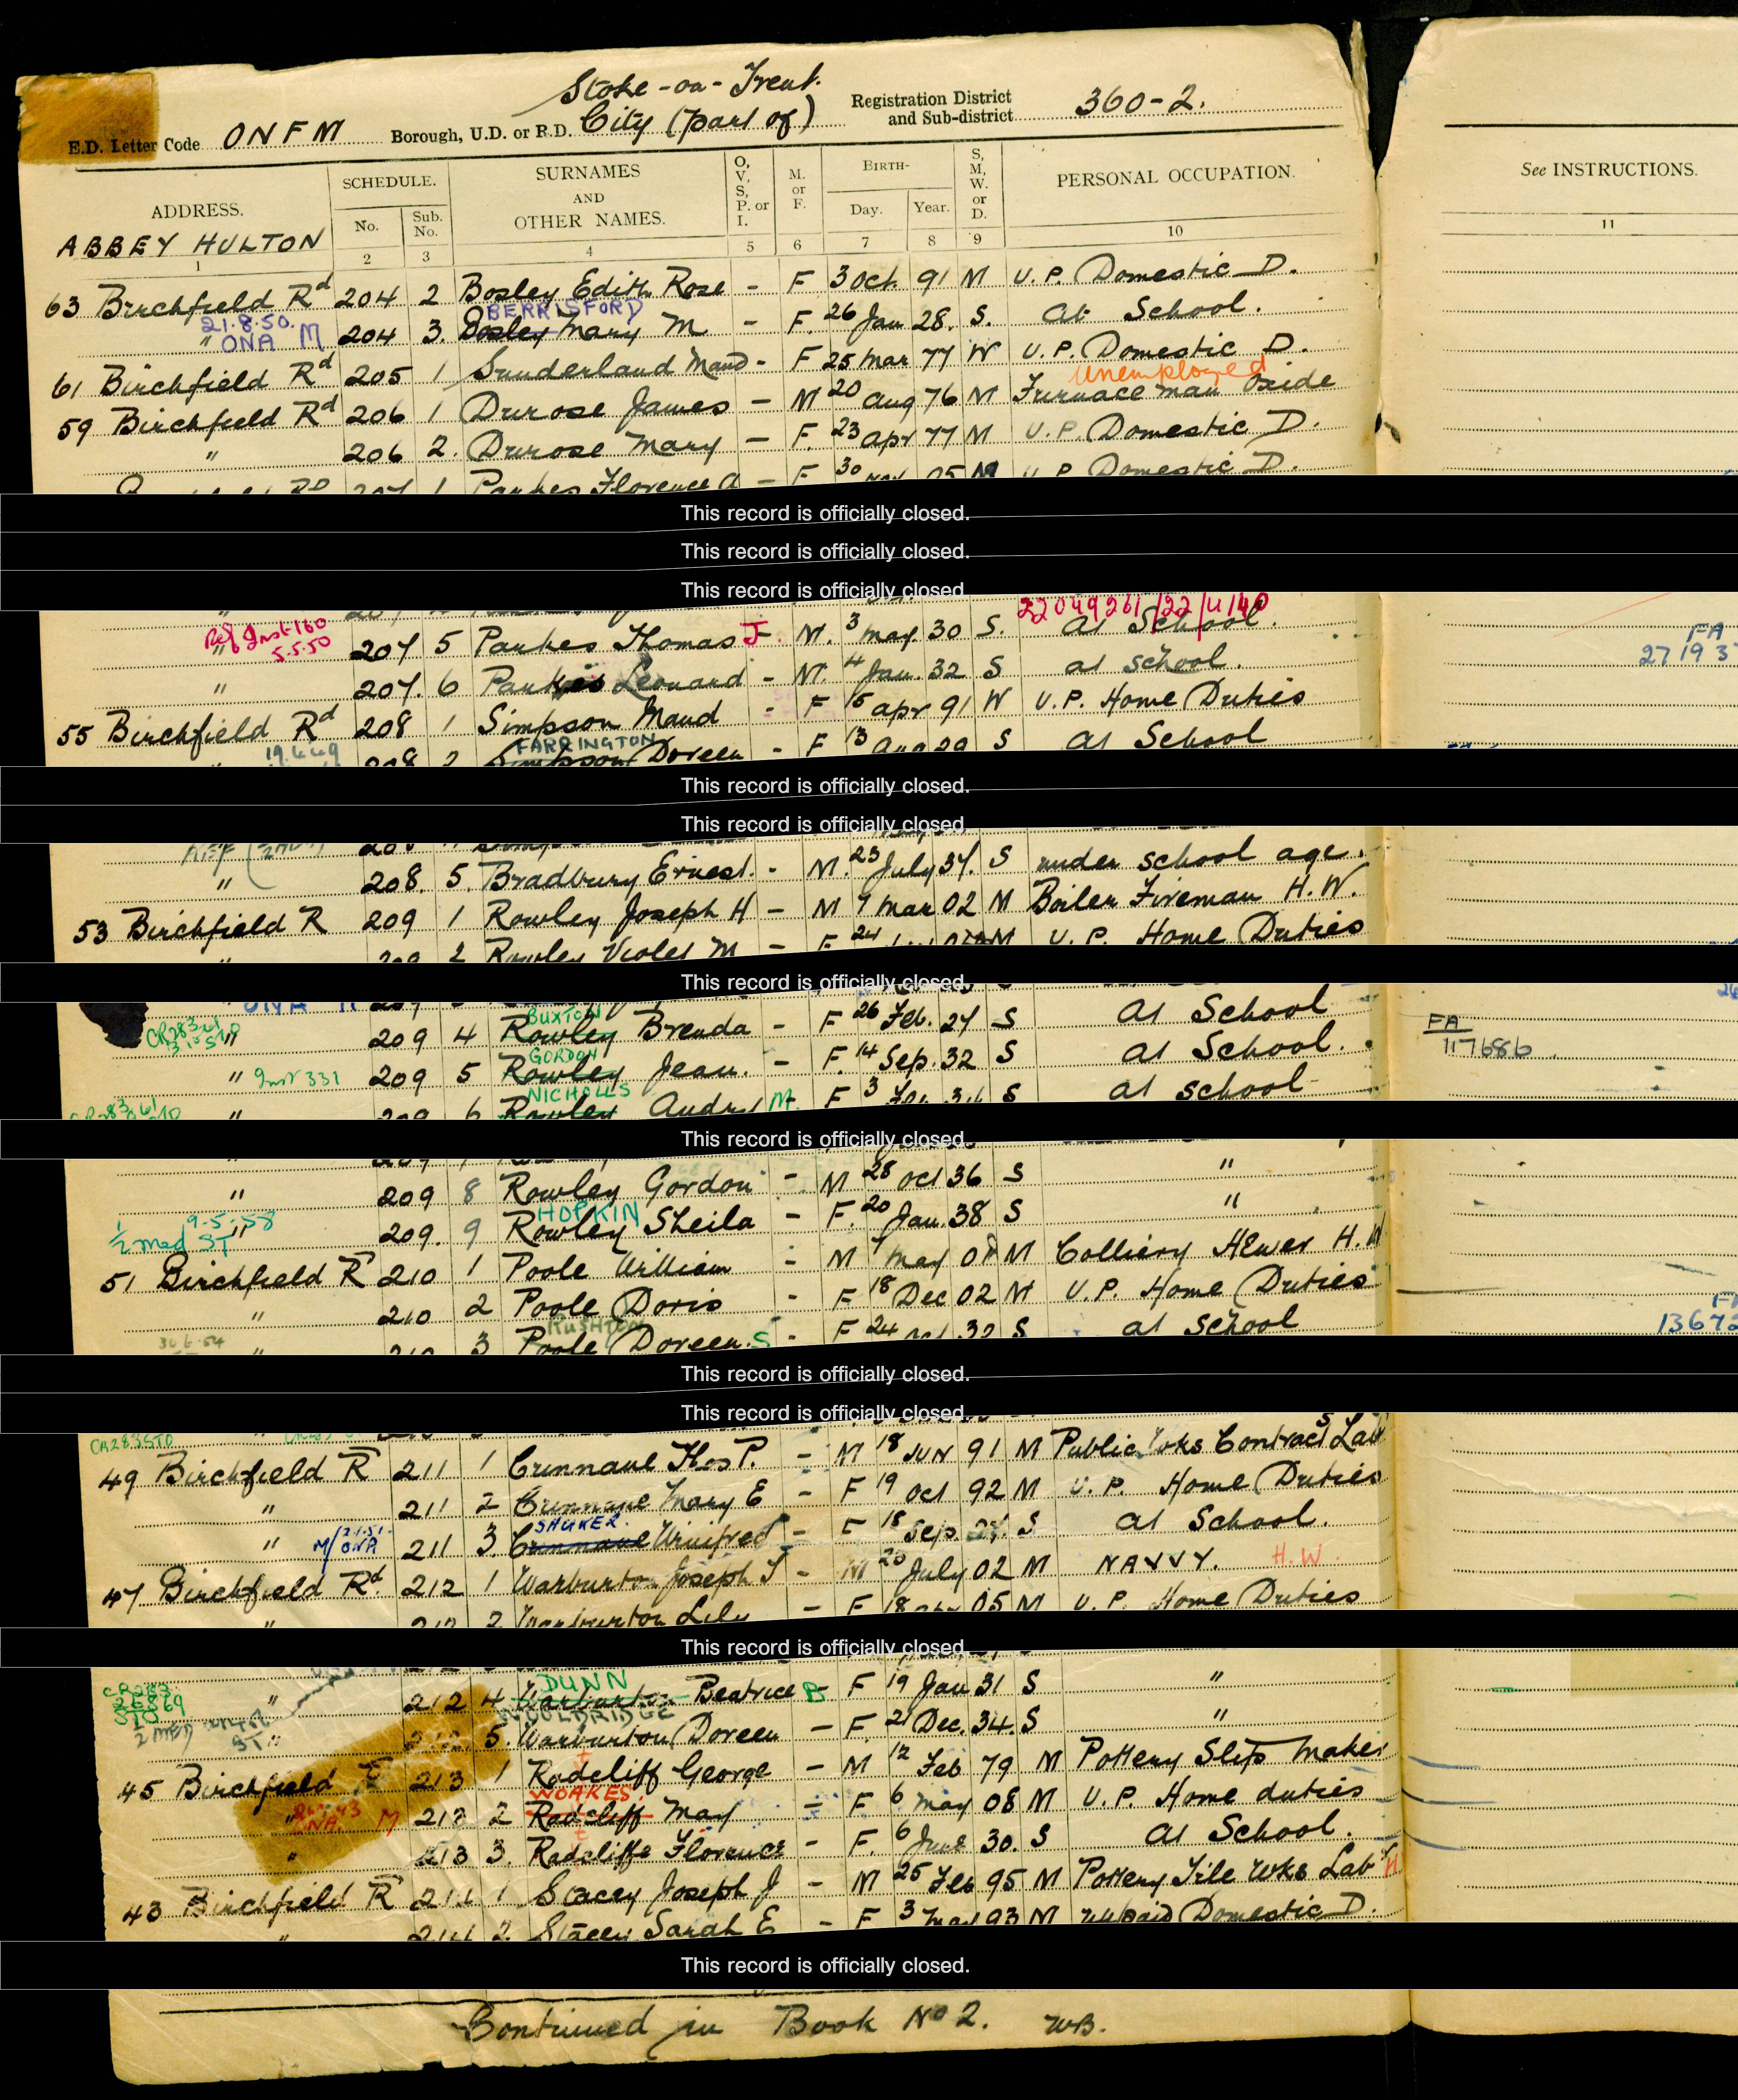 Stoke-on-Trent.
E.D. Letter Code ONFM Borough, U.D. or R.D. City (part of) Registration District and Sub-district 360-2.
ADDRESS. SCHEDULE. No. Sub. No. SURNAMES AND OTHER NAMES. O, V, S, P. or I. M. or F. BIRTH- Day. Year. S, M, W. or D. PERSONAL OCCUPATION. See INSTRUCTIONS.
ABBEY HULTON
1 2 3 4 5 6 7 8 9 10 11
63 Birchfield Rd 204 2 Bosley Edith Rose - F 3 Oct. 91 M U.P. Domestic D.
21.8.50. BERRISFORD
" ONA M 204 3. Bosley Mary M - F. 26 Jan 28. S. At School.
61 Birchfield Rd 205 1 Sunderland Maud - F 25 Mar 77 W U.P. Domestic D.
Unemployed
59 Birchfield Rd 206 1 Durose James - M 20 Aug 76 M Furnace man Oxide
" 206 2. Durose Mary - F. 23 Apr 77 M U.P. Domestic D.
207 1 Parkes Florence A - F 30 M U.P. Domestic D.
This record is officially closed.
This record is officially closed.
This record is officially closed.
22049261/22/4/40
5.5.50
" 207 5 Parkes Thomas J. M. 3 May. 30 S. At School.
FA
" 207. 6 Parkes Leonard - M. 4 Jan. 32 S at school.
55 Birchfield Rd 208 1 Simpson Maud - F 15 Apr 91 W U.P. Home Duties
FARRINGTON
208 2 Simpson Doreen - F 13 Aug 29 S At School
This record is officially closed.
This record is officially closed.
" 208. 5. Bradbury Ernest. - M. 23 July 37. S under school age.
53 Birchfield R 209 1 Rowley Joseph H - M 7 Mar 02 M Boiler Fireman H.W.
" 209 2 Rowley Violet M - F 24 M U.P. Home Duties
This record is officially closed.
BUXTON
" 209 4 Rowley Brenda - F 26 Feb. 27 S At School
FA
117686
GORDON
" 209 5 Rowley Jean. - F. 14 Sep. 32 S At School.
NICHOLLS
" 209 6 Rowley Audry M. F 3 S at school
This record is officially closed.
" 209 8 Rowley Gordon - M 28 Oct 36 S "
9.5.58 HOPKIN
1/2 med ST 209. 9 Rowley Sheila - F. 20 Jan. 38 S "
51 Birchfield R 210 1 Poole William - M May M Colliery Hewer H.W
" 210 2 Poole Doris - F 18 Dec 02 M U.P. Home Duties
RUSHTON
30.6.54 " 210 3 Poole Doreen. S - F 24 S at School
This record is officially closed.
This record is officially closed.
CR283STO
49 Birchfield R 211 1 Crinnane Thos P. - M 18 JUN 91 M Public Wks Contracts Lab
" 211 2 Crinnane Mary E - F 19 Oct 92 M U.P. Home Duties
SHUKER.
" M ONA 211 3. Crinnane Winifred - F 18 Sep. S At School.
47 Birchfield Rd. 212 1 Warburton Joseph T - M 20 July 02 M NAVVY. H.W.
" 212 2 Warburton Lily - F 18 05 M U.P. Home Duties
This record is officially closed.
DUNN
" 212 4 Warburton Beatrice B - F 19 Jan 31 S "
WOULDRIDGE
" 5. Warburton Doreen - F. 21 Dec. 34. S "
45 Birchfield 213 1 Radcliff George - M 12 Feb 79 M Pottery Slip Maker
WOAKES.
" ONA. M 213 2 Radcliff May - F 6 May 08 M U.P. Home duties
" 213 3. Radcliffe Florence - F. 6 June 30. S At School.
43 Birchfield R 214 1 Stacey Joseph J - M 25 Feb 95 M Pottery Tile Wks Lab
" 214 2. Stacey Sarah E - F 3 93 M unpaid Domestic D.
This record is officially closed.
Continued in Book No 2. WB.